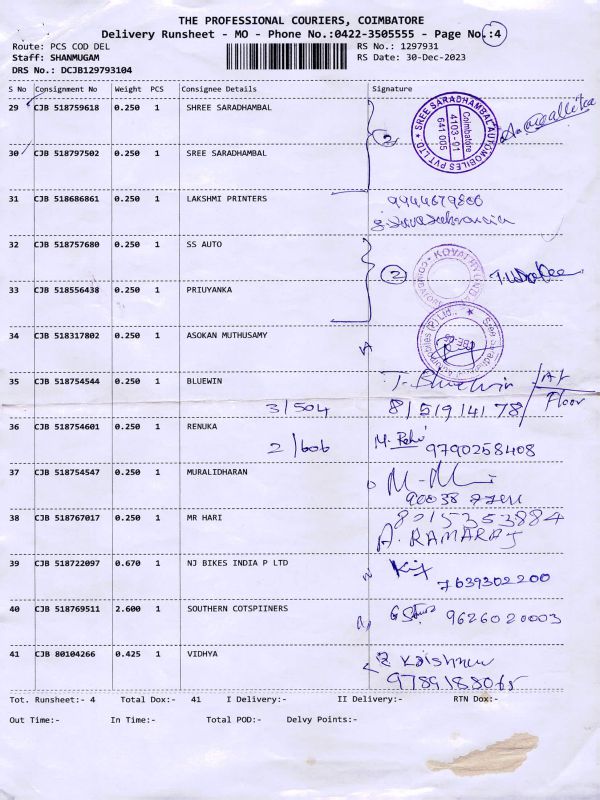 THE PROFESSIONAL COURIERS, COIMBATORE
Delivery Runsheet - MO - Phone No.:0422-3505555 - Page No.:4
Route: PCS COD DEL
RS No.: 1297931
Staff: SHANMUGAM
RS Date: 30-Dec-2023
DRS No.: DCJB129793104
S No Consignment No Weight PCS Consignee Details Signature
29 CJB 518759618 0.250 1 SHREE SARADHAMBAL
SREE SARADHAMBAL AUTOMOBILES PVT LTD
Coimbatore
4103-01
641 005
2
30 CJB 518797502 0.250 1 SREE SARADHAMBAL
31 CJB 518686861 0.250 1 LAKSHMI PRINTERS
32 CJB 518757680 0.250 1 SS AUTO
2
33 CJB 518556438 0.250 1 PRIUYANKA
34 CJB 518317802 0.250 1 ASOKAN MUTHUSAMY
35 CJB 518754544 0.250 1 BLUEWIN
3/504
Floor
36 CJB 518754601 0.250 1 RENUKA
2/606
9790258408
37 CJB 518754547 0.250 1 MURALIDHARAN
38 CJB 518767017 0.250 1 MR HARI
8015353884
A. RAMARAJ
39 CJB 518722097 0.670 1 NJ BIKES INDIA P LTD
7639302200
40 CJB 518769511 2.600 1 SOUTHERN COTSPIINERS
9626020003
41 CJB 80104266 0.425 1 VIDHYA
9789188065
Tot. Runsheet:- 4 Total Dox:- 41 I Delivery:- II Delivery:- RTN Dox:-
Out Time:- In Time:- Total POD:- Delvy Points:-